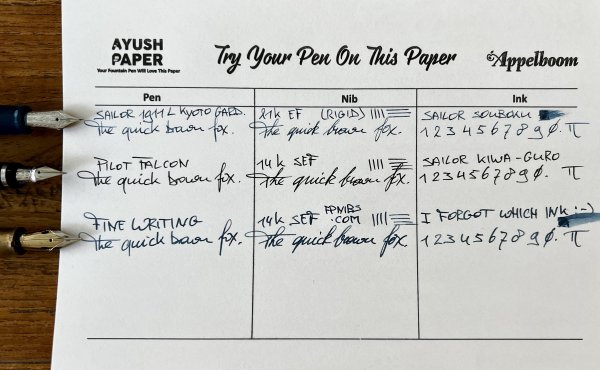 AYUSH
PAPER
Your Fountain Pen Will Love This Paper
Try Your Pen On This Paper
Appelboom
Pen
Nib
Ink
SAILOR 1911 L KYOTO GARD.
21k EF (RIGID)
SAILOR SOUBOKU
The quick brown fox.
The quick brown fox.
1 2 3 4 5 6 7 8 9 0. π
PILOT FALCON
14k SEF
SAILOR KIWA-GURO
The quick brown fox.
The quick brown fox.
1 2 3 4 5 6 7 8 9 0. π
FINE WRITING
14k SEF FPNIBS
.COM
I FORGOT WHICH INK :-)
The quick brown fox.
The quick brown fox.
1 2 3 4 5 6 7 8 9 0. π